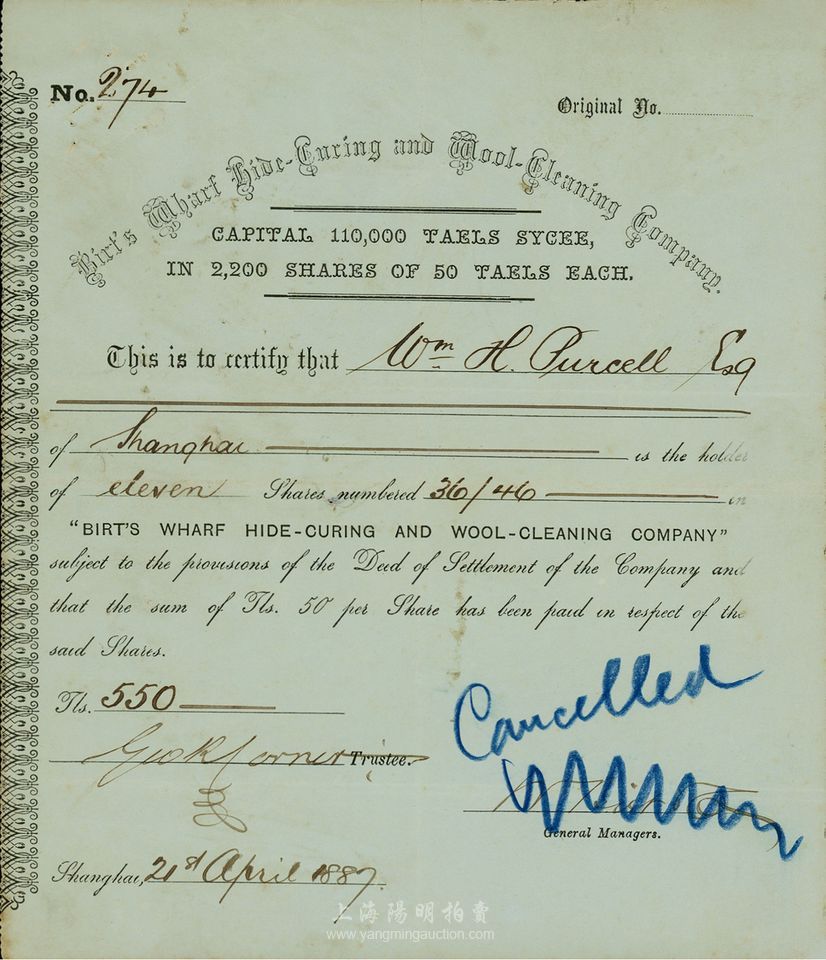 No. 274
Original No.
Birt's Wharf Hide-Curing and Wool-Cleaning Company.
CAPITAL 110,000 TAELS SYCEE,
IN 2,200 SHARES OF 50 TAELS EACH.
This is to certify that Wm H. Purcell Esq
of Shanghai is the holder
of eleven Shares numbered 36/46 in
"BIRT'S WHARF HIDE-CURING AND WOOL-CLEANING COMPANY"
subject to the provisions of the Deed of Settlement of the Company and
that the sum of Tls. 50 per Share has been paid in respect of the
said Shares.
Tls. 550
Cancelled
Geo R Corner Trustee.
General Managers.
Shanghai, 21st April 1887.
上海陽明拍賣
www.yangmingauction.com